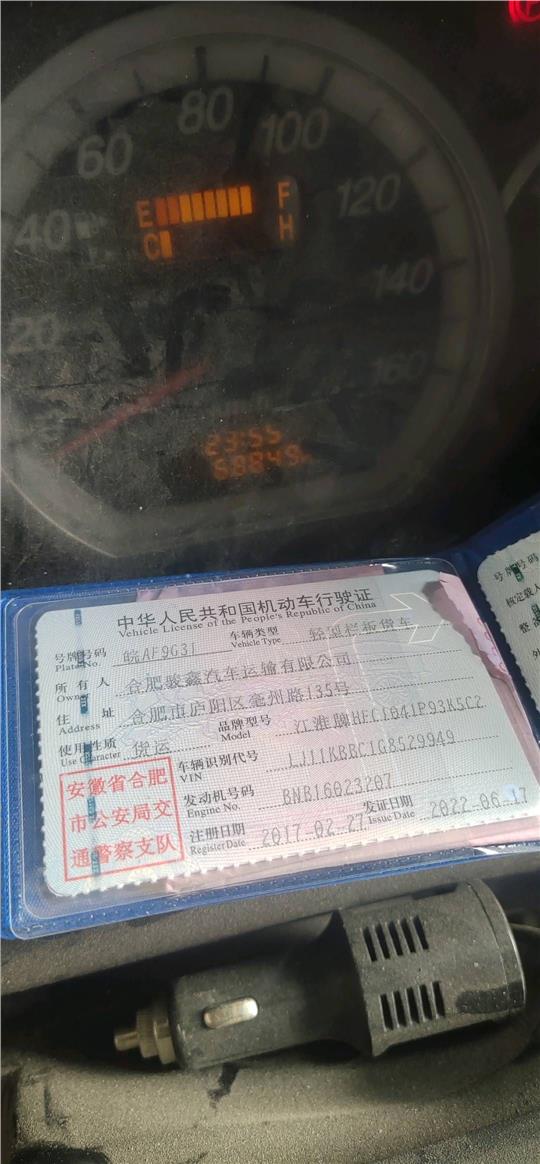 80
60
100
40
120
E
F
C
H
140
20
160
23:55
68849
中华人民共和国机动车行驶证
Vehicle License of the People's Republic of China
号牌号码 皖AF9G31 车辆类型 轻型栏板货车
Plate No. Vehicle Type
所有人 合肥骏鑫汽车运输有限公司
Owner
住址 合肥市庐阳区亳州路135号
Address
使用性质 货运 品牌型号 江淮牌HFC1041P93K5C2
Use Character Model
车辆识别代号 LJ11KBBC1G8529949
VIN
发动机号码 BNB16023207
Engine No.
注册日期 2017-02-27 发证日期 2022-06-17
Register Date Issue Date
安徽省合肥
市公安局交
通警察支队
号牌号码
核定载人
整
外